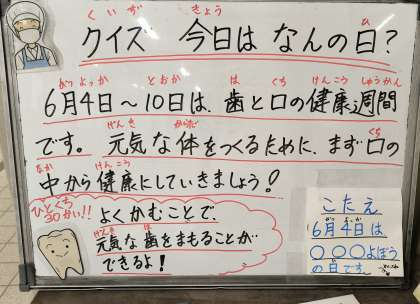 クイズ 今日は なんの日?
くいず きょう ひ
6月4日~10日は、歯と口の健康週間
がつよっか とおか は くち けんこう しゅうかん
です。元気な体をつくるために、まず口の
げんき からだ くち
中から健康にしていきましょう!
なか けんこう
ひとくち
30かい!!
よくかむことで、
元気な歯をまもることが
げんき は
できるよ!
こたえ
6月4日は
がつ よっか
〇〇〇よぼう
の日です。